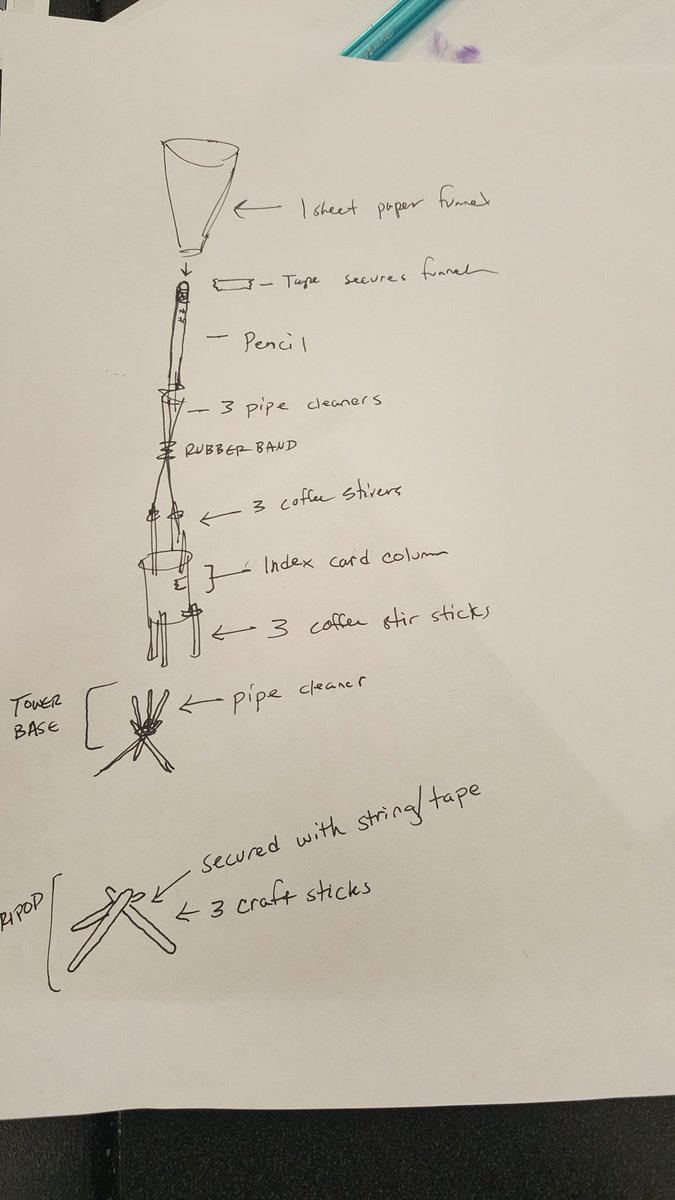 1 sheet paper funnel
Tape secures funnel
Pencil
3 pipe cleaners
RUBBER BAND
3 coffee stirers
Index card column
3 coffee stir sticks
TOWER
BASE
pipe cleaner
secured with string/tape
RIPOD
3 craft sticks